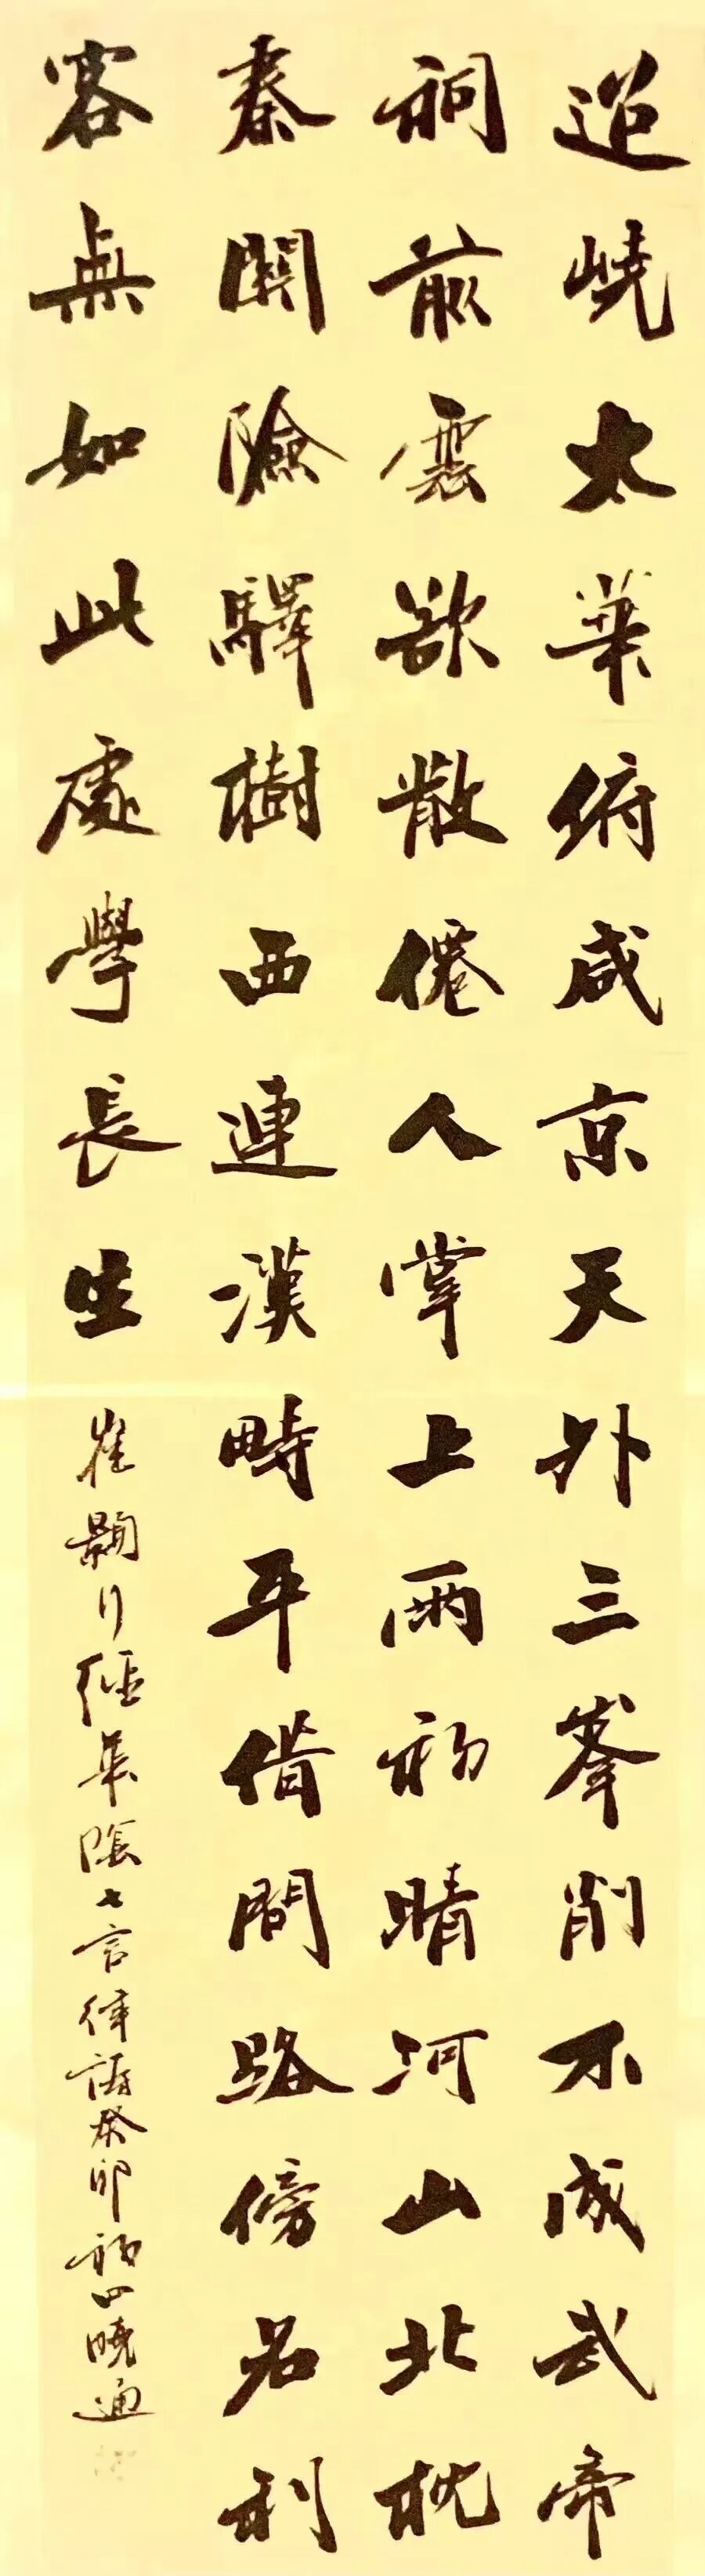 迢嶢太華俯咸京天外三峯削不成武帝
祠前雲欲散僊人掌上雨初晴河山北枕
秦關險驛樹西連漢畤平借問路傍名利
客無如此處學長生 崔顥行經華陰七言律詩癸卯初四曉通